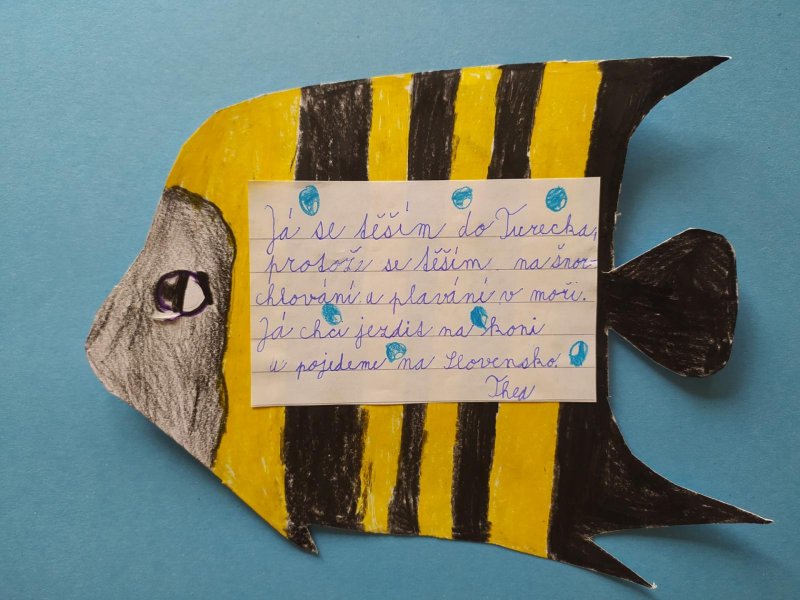 Já se těším do Turecka,
protože se těším na šnor-
chlování a plavání v moři.
Já chci jezdit na koni
a pojedeme na Slovensko.
Thea